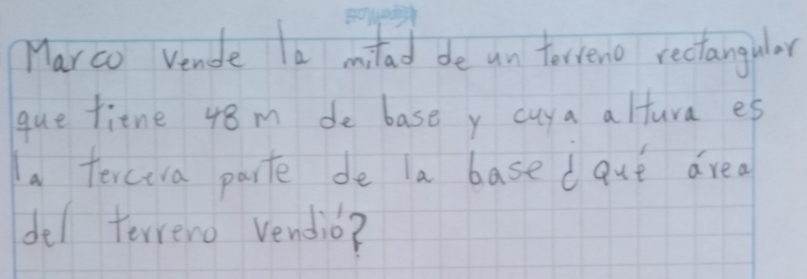 Marco vende la mitad de un terreno rectangular
que tiene 48 m de base y cuya altura es
la tercera parte de la base ¿Qué área
del terreno vendió?